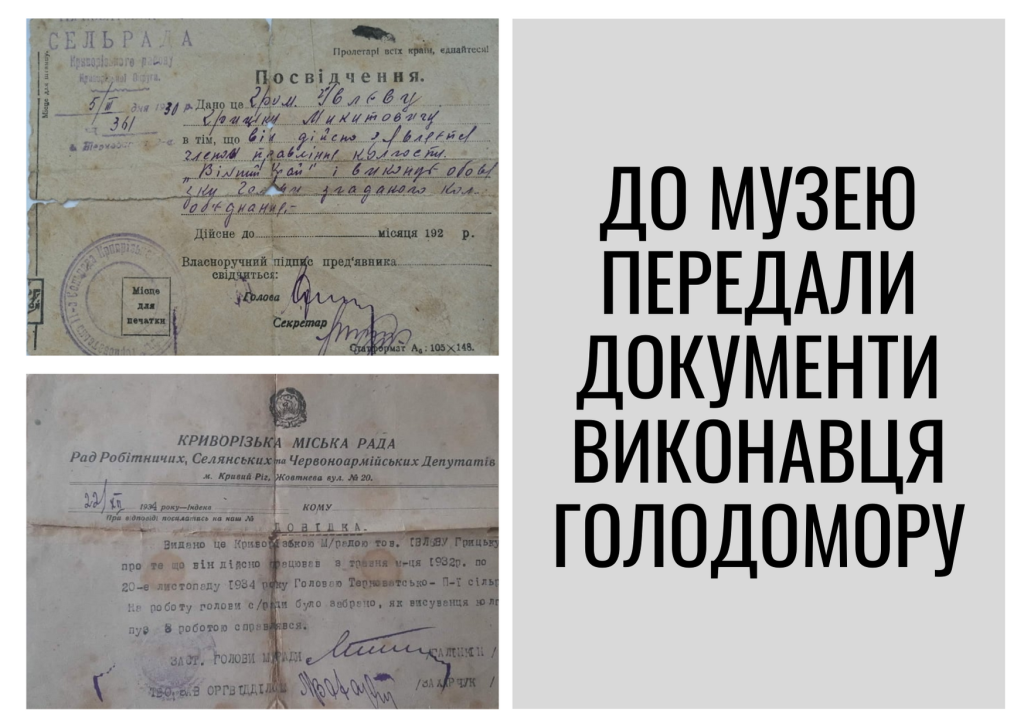 СЕЛЬРАДА
Криворізького району
Криворізької Округи.
5/III дня 1930 р.
№ 361
Місце для штампу.
Пролетарі всіх країн, єднайтеся!
Посвідчення.
Дано це Гром. Івлєву
Грицьку Микитовичу
в тім, що він дійсно является
членом правління колгосп.
„Вільний Край" і виконує обовя
зки Голови згаданого кол.
обєднання.-
Дійсне до місяця 192 р.
Власноручний підпис пред'явника
свідчиться:
Голова
Секретар
Місце
для
печатки
Станформат А₆: 105×148.
КРИВОРІЗЬКА МІСЬКА РАДА
Рад Робітничих, Селянських та Червоноармійських Депутатів
м. Кривий Ріг, Жовтнева вул. № 20.
22/XII 1934 року—Індекс КОМУ
При відповіді посилатись на наш №
ДОВІДКА.
Видано це Криворізькою М/радою тов. ІВЛЄВУ Грицьку
про те що він дійсно працював в травня м-ця 1932р. по
20-е листопаду 1934 року Головою Терноватсько- П-ї сільр
На роботу голови с/ради було вабрано, як висуванця колг
пув З роботою справлявся.
ЗАСТ. ГОЛОВИ М/РАДИ /ГАЛУШКІН/
ТВО.ЗАВ ОРГВІДДІЛОМ /ЗАХАРЧУК /
ДО МУЗЕЮ
ПЕРЕДАЛИ
ДОКУМЕНТИ
ВИКОНАВЦЯ
ГОЛОДОМОРУ